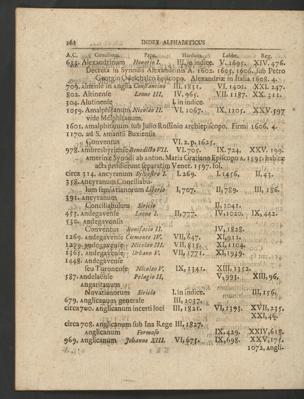 262 INDEX ALPHABETICUS
A.C. Concilium. Papa. Harduin. Labbe. Reg.
633. Alexandrinum Honorio I. III. in indice. V, 1695. XIV, 476.
Decreta in Synodis Alexandrinis A. 1602. 1605. 1606. sub Petro
709. Alniense in Anglia Constantino III, 1821. VI, 1401. XXI. 247.
802. Altinense Leone III. IV, 965. VII, 1187. XX.
304. Alutinense I. in indice.
1059. Amalphitanum Nicolao II. VI, 1067. IX, 1205. XXV. 597
vide Melphitanum.
1601. Amalphitanum sub Julio Rossinio archiepiscopo. Firmi 1606. 4
1170. ad S. Amantii Baxientis
Conventus VI. 2. p. 1625.
978. Ambresbyriense Benedicto VII. VI, 705. IX, 724. XXV, 199.
Amerinæ Synodi ab anton. Maria Gratiano Episcopo a. 1595. habitæ
acta prodierunt separatim Venet. 1597. fol.
circa 314. ancyranum Sylvestro I. I, 269. I, 1456. II, 43.
358. ancyranum Concilium semiarianorum Liberio I, 707. II, 789. III, 186.
391. ancyranum
Conciliabulum Siricio II, 1041.
453. andegavense Leone I. II, 777. IV, 1020. IX, 442.
530. andegavensis
Conventus Bonifacio II. IV, 1828.
1269. andegavense Clemente IV. VII, 647. XI, 911.
1279. andegavense Nicolao III. VII, 815. XI, 1104.
1365. andegavense Urbano V. VII, 1771. XI, 1949.
1448. andegavense
seu Turonense Nicolao V. IX, 1341. XIII, 1352.
587. andelaense Pelagio II, V, 993. XIII, 96,
angaritanum
Novatianorum Siricio I. in indice. III, 156,
679. anglicanum generale III, 2037.
circa 700. anglicanum incerti loci III, 1821. VI, 1393. XVII, 235.
XXI, 44.
circa 708. anglicanum sub Ina Rege III, 1827.
anglicanum Formoso IX, 429. XXIV, 618.
969. anglicanum Johanne XIII. VI, 675. IX, 698. XXV, 175.
1072, angli-